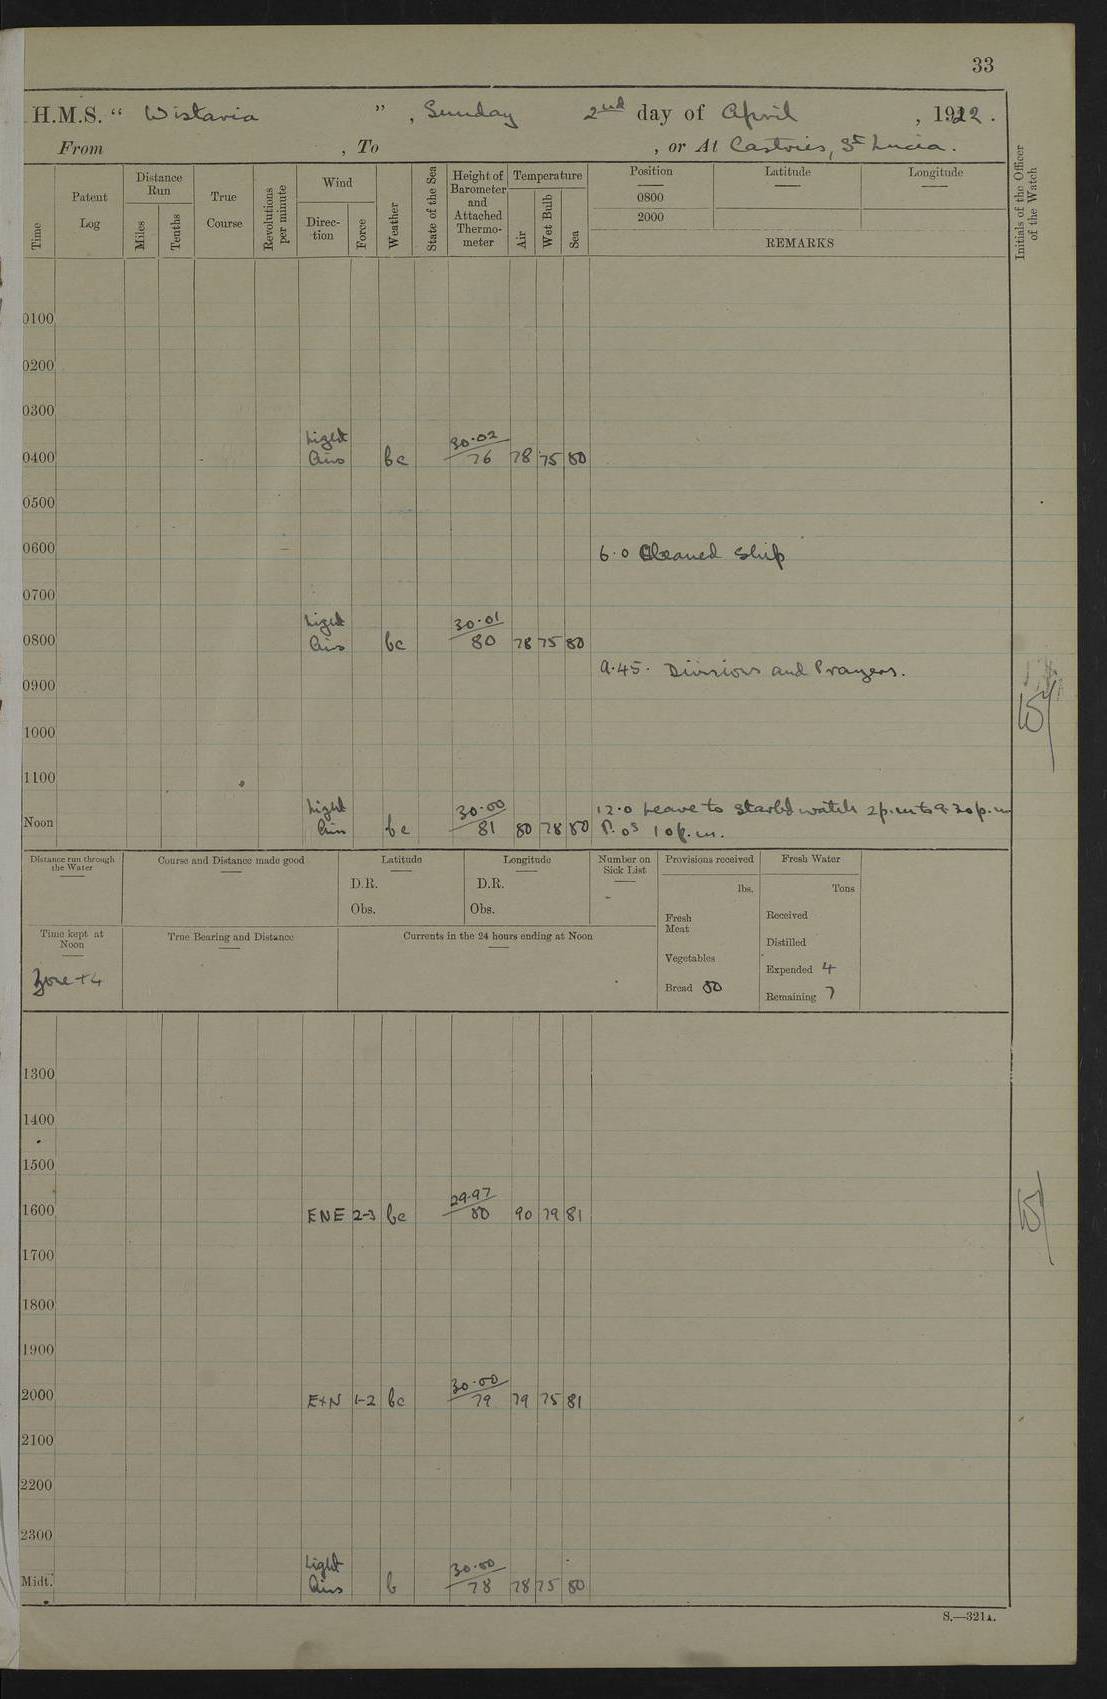 33
H.M.S. “ Wistaria ” , Sunday 2nd day of April , 1922.
From , To , or At Castries, St Lucia.
Time
Patent Log
Distance Run
Miles
Tenths
True Course
Revolutions per minute
Wind
Direction
Force
Weather
State of the Sea
Height of Barometer and Attached Thermometer
Temperature
Air
Wet Bulb
Sea
Position Latitude Longitude
0800
2000
REMARKS
Initials of the Officer of the Watch
0100
0200
0300
Light 30.02
0400 Airs bc 76 78 75 80
0500
0600 6.0 Cleaned Ship
0700
Light 30.01
0800 Airs bc 80 78 75 80
9.45. Divisions and Prayers.
0900
1000
1100
Light 30.00 12.0 Leave to Starbd watch 2p.m to 9.30p.m
Noon Airs bc 81 80 78 80 P.Os 10p.m.
Distance run through the Water
Course and Distance made good
Latitude
D.R.
Obs.
Longitude
D.R.
Obs.
Number on Sick List
-
Provisions received
lbs.
Fresh Meat
Vegetables
Bread 80
Fresh Water
Tons
Received
Distilled
Expended 4
Remaining 7
Time kept at Noon
Zone +4
True Bearing and Distance
Currents in the 24 hours ending at Noon
1300
1400
1500
29.97
1600 ENE 2-3 bc 80 90 79 81
1700
1800
1900
30.00
2000 ExN 1-2 bc 79 79 75 81
2100
2200
2300
Light 30.00
Midt. Airs b 78 78 75 80
S.—321A.